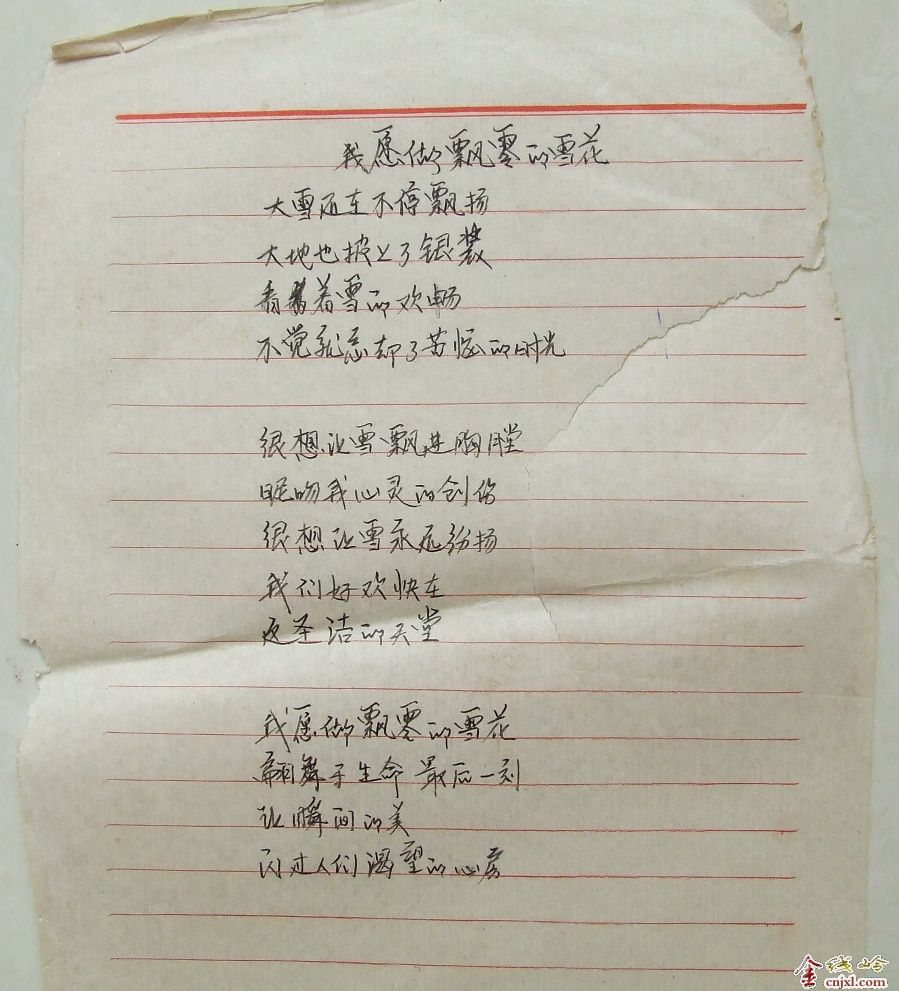 我愿做飘零的雪花
大雪还在不停飘扬
大地也披上了银装
看着雪的欢畅
不觉就忘却了苦恼的时光
很想让雪飘进胸膛
昵吻我心灵的创伤
很想让雪永远纷扬
我们好欢快在
这圣洁的天堂
我愿做飘零的雪花
翩舞于生命最后一刻
让瞬间的美
闪过人们渴望的心房
金线岭
cnjxl.com